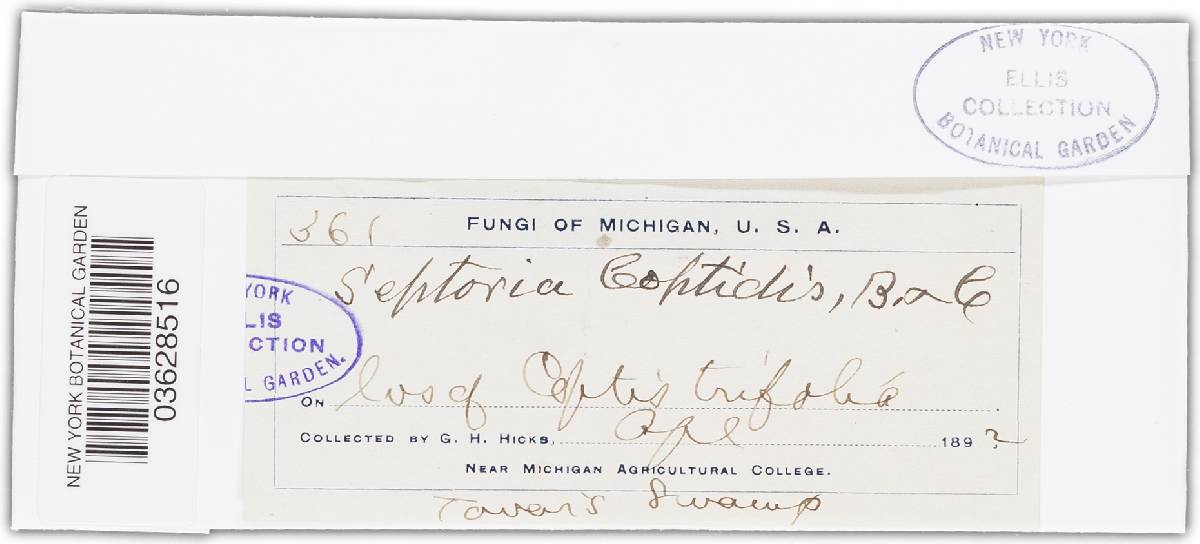 NEW YORK
ELLIS
COLLECTION
BOTANICAL GARDEN
NEW YORK BOTANICAL GARDEN
03628516
361
FUNGI OF MICHIGAN, U. S. A.
Septoria Coptidis, B. & C
YORK
LIS
CTION
L GARDEN.
ON lvs of Coptis trifolia
COLLECTED BY G. H. HICKS, Apl 1892
NEAR MICHIGAN AGRICULTURAL COLLEGE.
Swamp